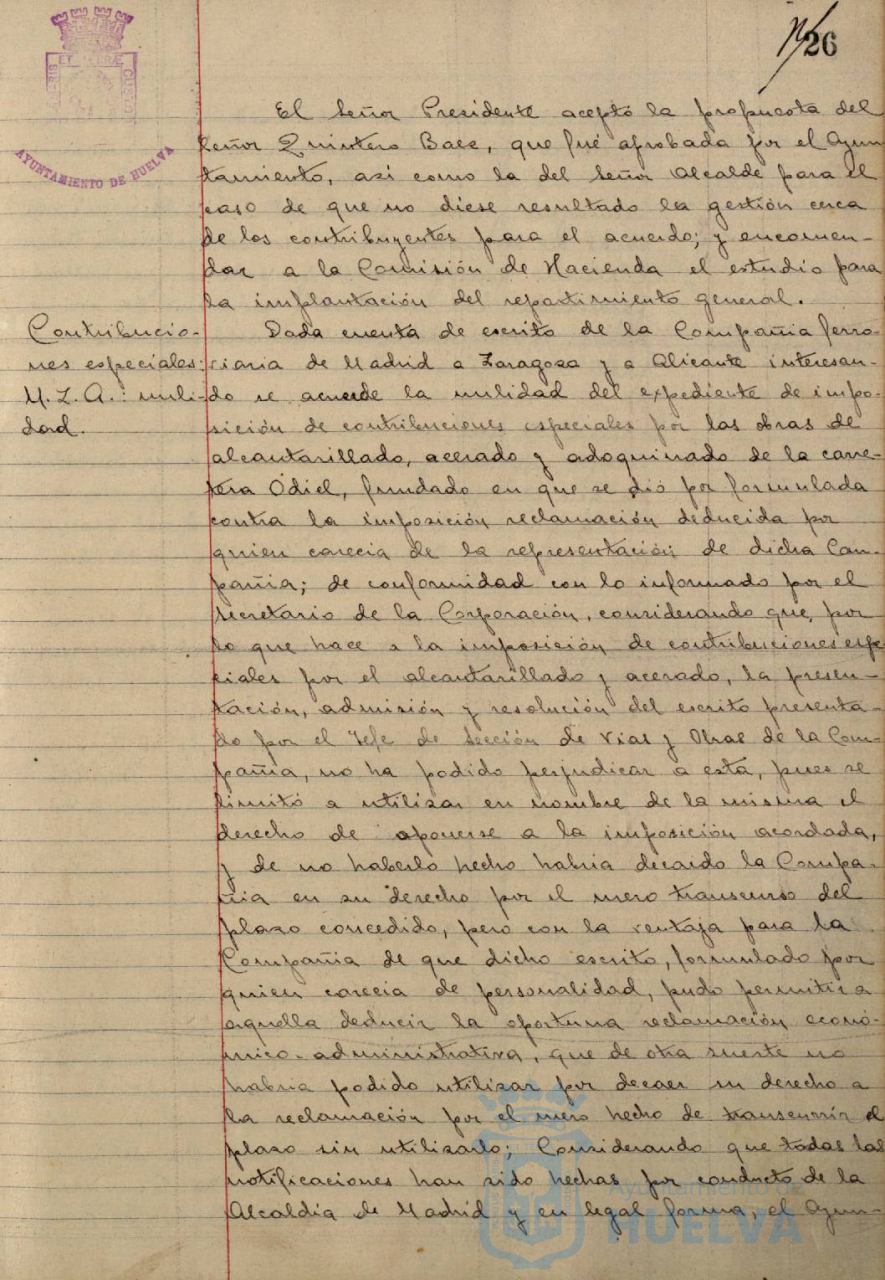 26
PORTUS MARIS ET TERRAE CUSTODIA
AYUNTAMIENTO DE HUELVA
El Señor Presidente aceptó la propuesta del
Señor Quintero Baez, que fué aprobada por el Ayun-
tamiento, así como la del Señor Alcalde para el
caso de que no diese resultado la gestión cerca
de los contribuyentes para el acuerdo; y encomen-
dar a la Comisión de Hacienda el estudio para
la implantación del repartimiento general.
Contribucio-
nes especiales:
M. Z. A.: nuli-
dad.
Dada cuenta de escrito de la Compañia ferro-
viaria de Madrid a Zaragoza y a Alicante interesan-
do se acuerde la nulidad del expediente de impo-
sición de contribuciones especiales por las obras de
alcantarillado, acerado y adoquinado de la carre-
tera Odiel, fundado en que se dió por formulada
contra la imposición reclamación deducida por
quien carecia de la representación de dicha Com-
pañia; de conformidad con lo informado por el
Secretario de la Corporación, considerando que, por
lo que hace a la imposición de contribuciones espe
ciales por el alcantarillado y acerado, la presen-
tación, admisión y resolución del escrito presenta-
do por el Jefe de Sección de Vias y Obras de la Com-
pañia, no ha podido perjudicar a esta, pues se
limitó a utilizar en nombre de la misma el
derecho de oponerse a la imposición acordada,
y de no haberlo hecho habria decaido la Compa-
ñia en su derecho por el mero transcurso del
plazo concedido, pero con la ventaja para la
Compañia de que dicho escrito, formulado por
quien carecia de personalidad, pudo permitir a
aquella deducir la oportuna reclamación econó-
mico-administrativa, que de otra suerte no
habria podido utilizar por decaer su derecho a
la reclamación por el mero hecho de transcurrir el
plazo sin utilizarlo; Considerando que todas las
notificaciones han sido hechas por conducto de la
Alcaldia de Madrid y en legal forma, el Ayun-
Ayuntamiento de
HUELVA